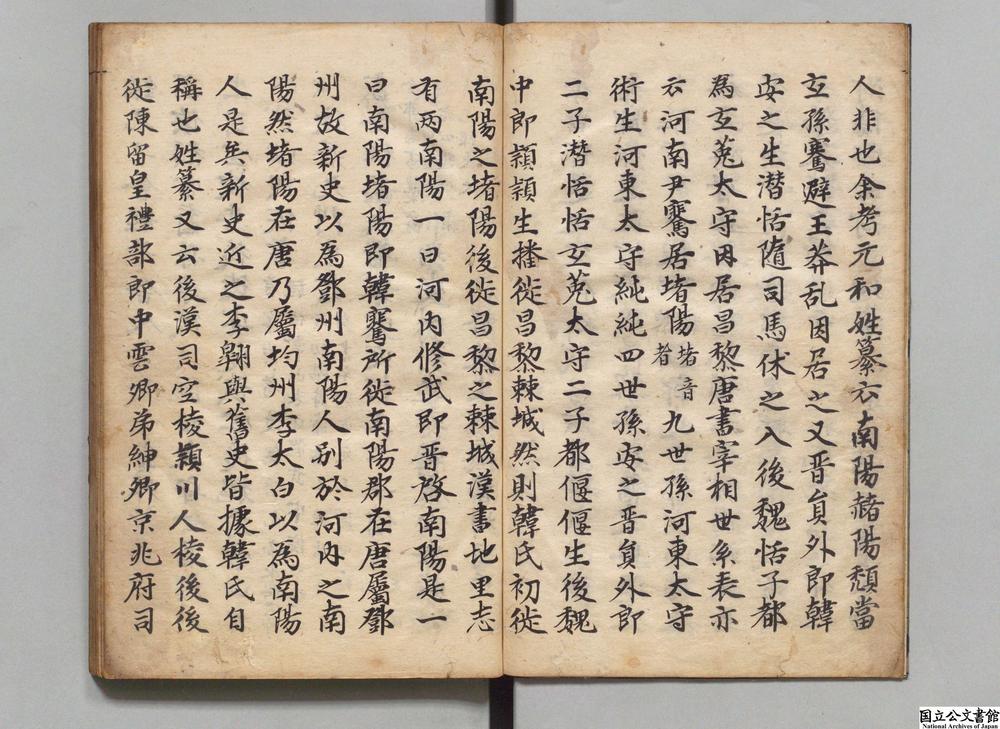 人非也余考元和姓纂云南陽赭陽頽當
玄孫騫避王莽乱因居之又晋員外郎韓
安之生潜恬隨司馬休之入後魏恬子都
為玄菟太守因居昌黎唐書宰相世系表亦
云河南尹騫居堵陽堵音者九世孫河東太守
術生河東太守純純四世孫安之晋員外郎
二子潜恬恬玄菟太守二子都偃偃生後魏
中郎穎穎生播徙昌黎棘城然則韓氏初徙
南陽之堵陽後徙昌黎之棘城漢書地里志
有两南陽一曰河内修武即晋啓南陽是一
曰南陽堵陽即韓騫所徙南陽郡在唐屬鄧
州故新史以為鄧州南陽人别於河内之南
陽然堵陽在唐乃屬均州李太白以為南陽
人是矣新史近之李翺與舊史皆據韓氏自
稱也姓纂又云後漢司空棱穎川人棱後後
徙陳留皇禮部郎中雲卿弟紳卿京兆府司
国立公文書館
National Archives of Japan